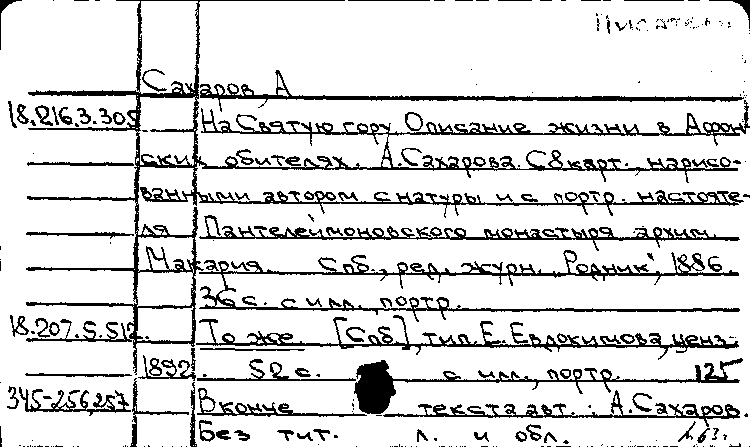 Писатели
Сахаров, А
18.216.3.305 На Святую гору. Описание жизни в Афон-
ских обителях. А. Сахарова. С 8 карт., нарисо-
ванными автором с натуры и с портр. настояте-
ля Пантелеймоновского монастыря архим.
Макария. Спб., ред. журн. "Родник", 1886.
36 с. с илл., портр.
18.207.5.512. То же. [Спб.], тип. Е. Евдокимова, ценз.
1892. 52 с. с илл., портр. 125
345-256,257 В конце текста авт.: А. Сахаров.
Без тит. л. и обл.